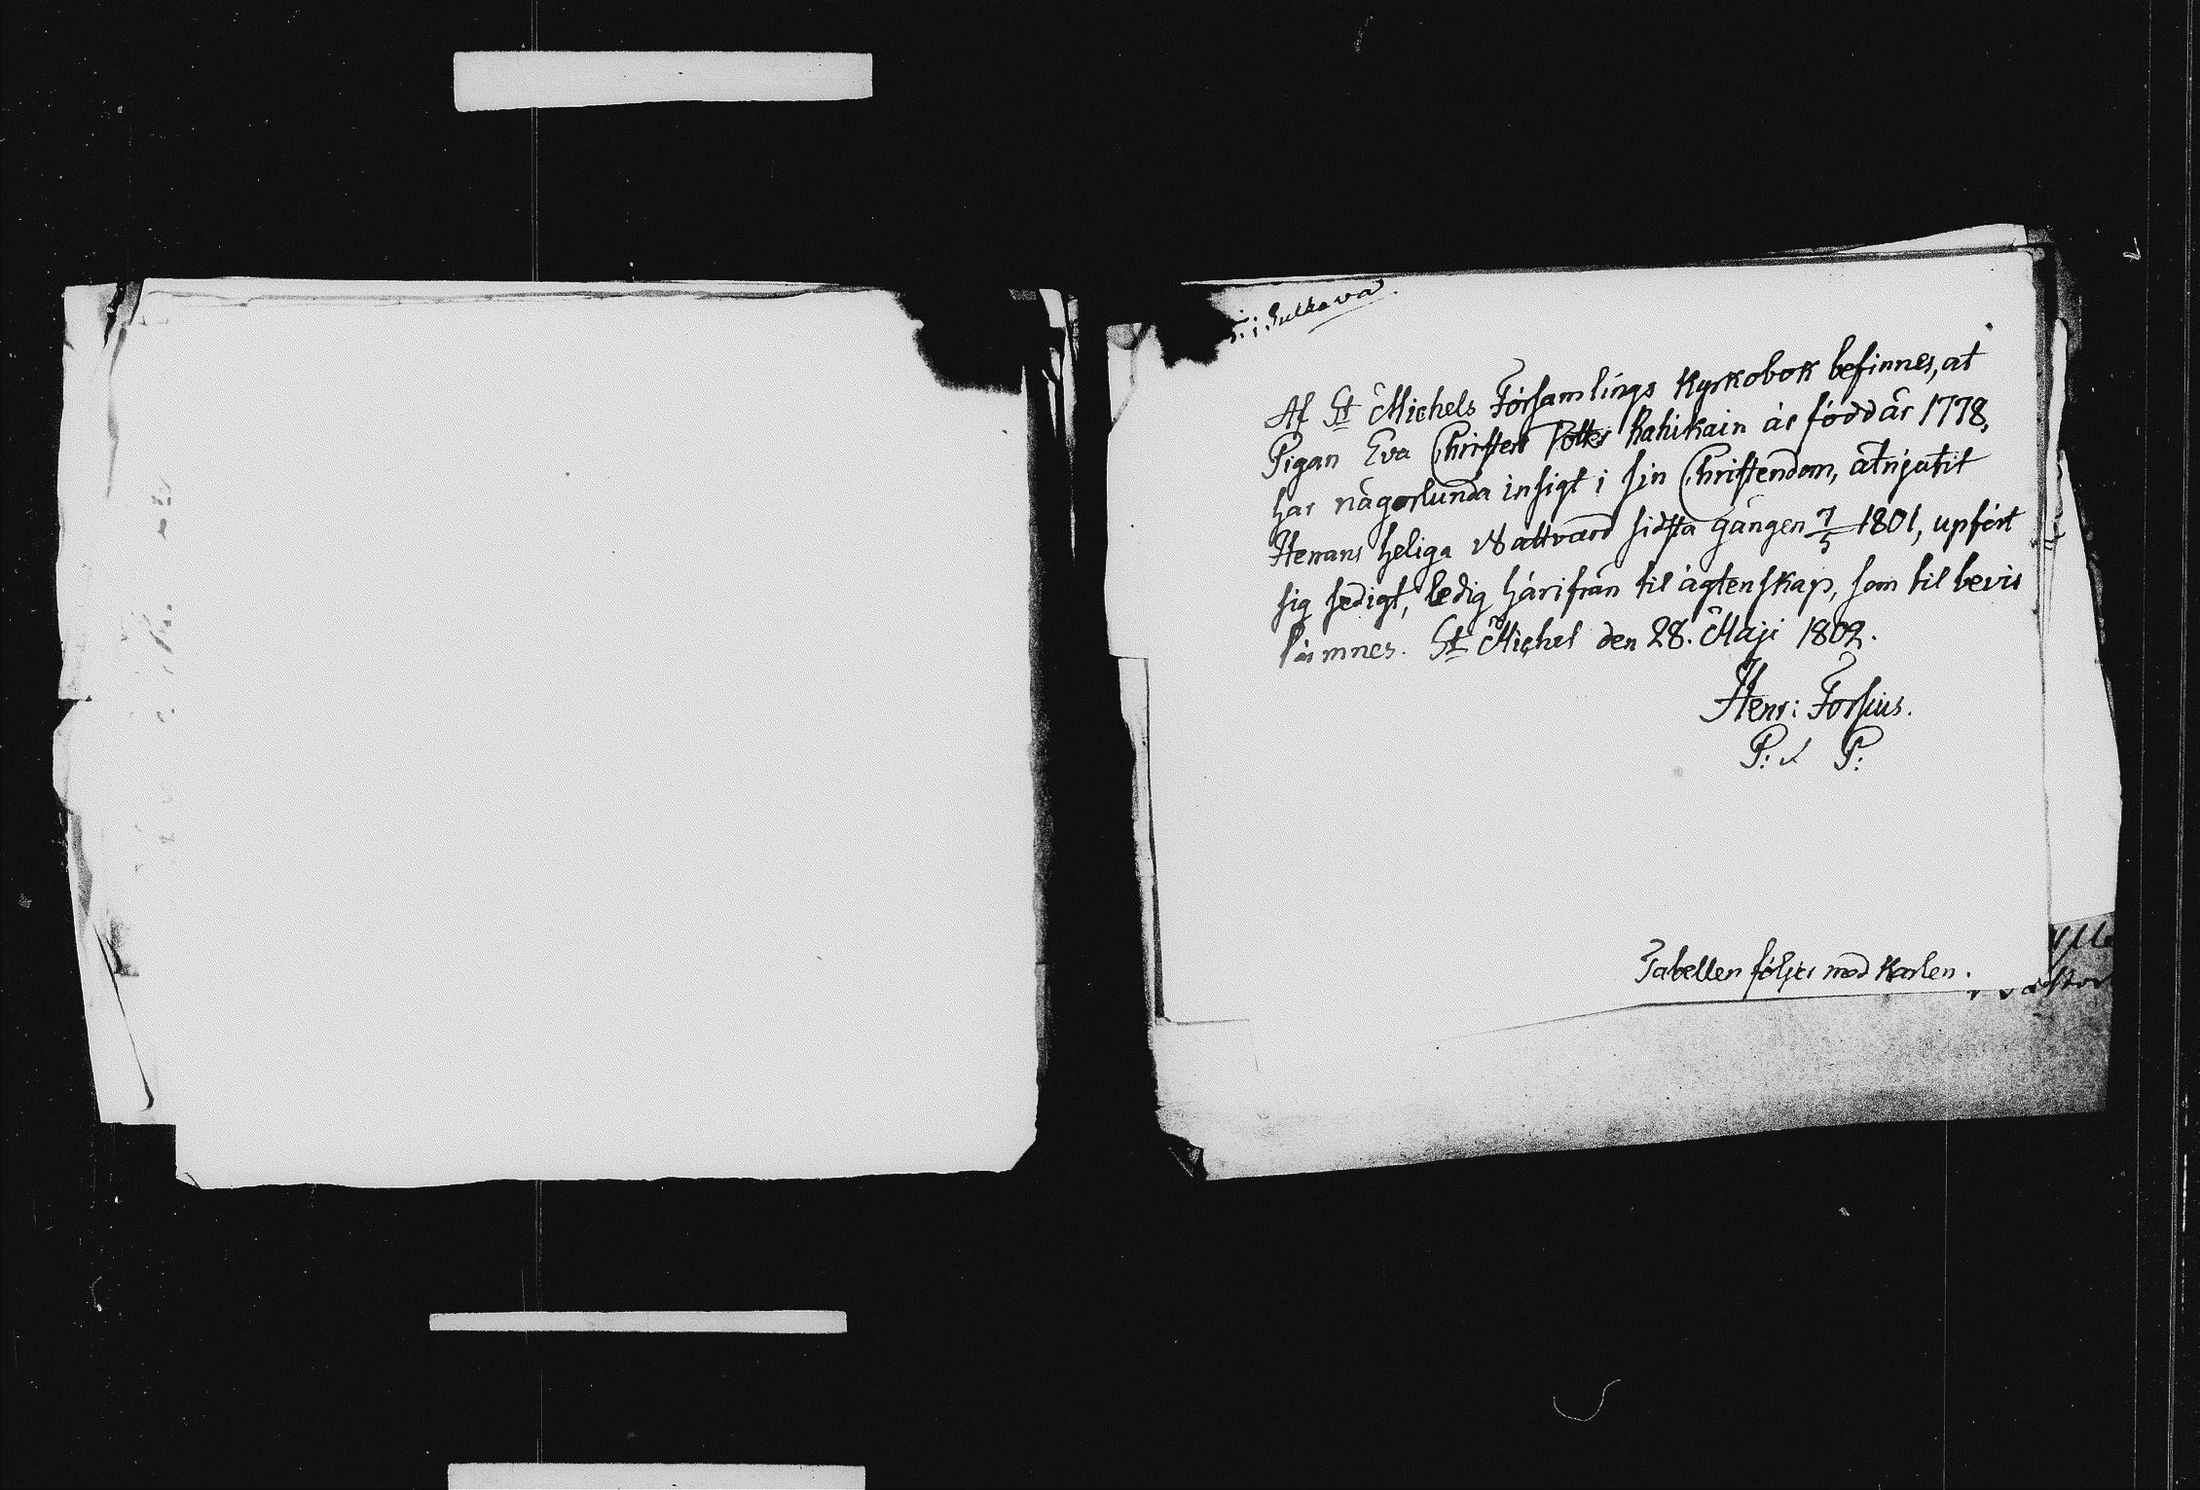 i Sulkava.
Af St Michels Församlings Kyrkobok befinnes, at
Pigan Eva Christers Potter Rahikain är född år 1778,
har någorlunda insigt i sin Christendom, åtnjutit
Herrans heliga Nattvard sidsta gången 7/5 1801, upfört
sig sedigt, ledig härifrån til ägtenskap, som til bevis
lämnes. St Michel den 28. Maji 1802.
Henr: Forsius.
P: P:
Tabellen följer med Karlen.